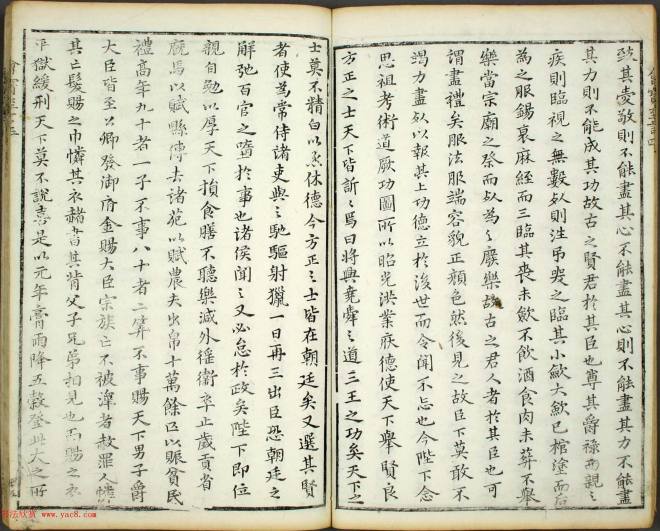 致其愛敬則不能盡其心不能盡其心則不能盡其力不能盡
其力則不能成其功故古之賢君於其臣也尊其爵祿而親之
疾則臨視之無數死則往弔哭之臨其小歛大歛已棺塗而后
為之服錫衰麻絰而三臨其喪未歛不飲酒食肉未葬不舉
樂當宗廟之祭而死為之廢樂故古之君人者於其臣也可
謂盡禮矣服法服端容貌正顏色然後見之故臣下莫敢不
竭力盡死以報其上功德立於後世而令聞不忘也今陛下念
思祖考術道厥功圖所以昭光洪業庥德使天下舉賢良
方正之士天下皆訢〻焉曰將興堯舜之道三王之功矣天下之
士莫不精白以承休德今方正之士皆在朝廷矣又選其賢
者使為常侍諸吏與之馳驅射獵一日再三出臣恐朝廷之
解弛百官之墮於事也諸侯聞之又必怠於政矣陛下即位
親自勉以厚天下損食膳不聽樂減外徭衛卒止歲貢省
廄馬以賦縣傳去諸苑以賦農夫出帛十萬餘匹以賑貧民
禮高年九十者一子不事八十者二算不事賜天下男子爵
大臣皆至公卿發御府金賜大臣宗族亡不被澤者赦罪人憐
其亡髮賜之巾憐其衣赭書其背父子兄弟相見也而賜之衣
平獄緩刑天下莫不說喜是以元年膏雨降五穀登此天之所
书法欣赏 www.yac8.com